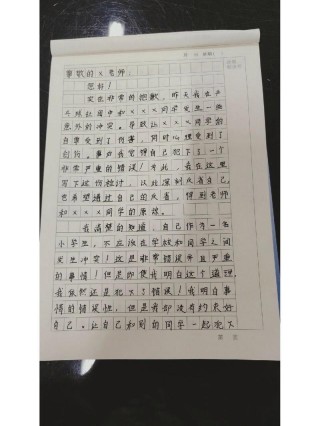 尊敬的××老师:
您好!
实在非常的抱歉,昨天我在乒
乓球社团中和×××同学发生一些
意外的冲突。导致让×××同学的
自尊受到了伤害,同时心理受到了
创伤。事后我觉得自己犯下了一个
非常严重的错误!于此,我在这里
写下这份检讨,以此深刻反省自己,
也希望通过自己的反省,得到老师
和×××同学的原谅。
我清楚的知道,自己作为一名
小学生,不应该在学校和同学之间
发生冲突!这是非常错误并且严重
的事情!但是即使我明白这个道理
我依然还是犯下了错误!我明白事
情的错误性,但是我却没有约束好
自己。让自己和别的同学一起犯下
第 页